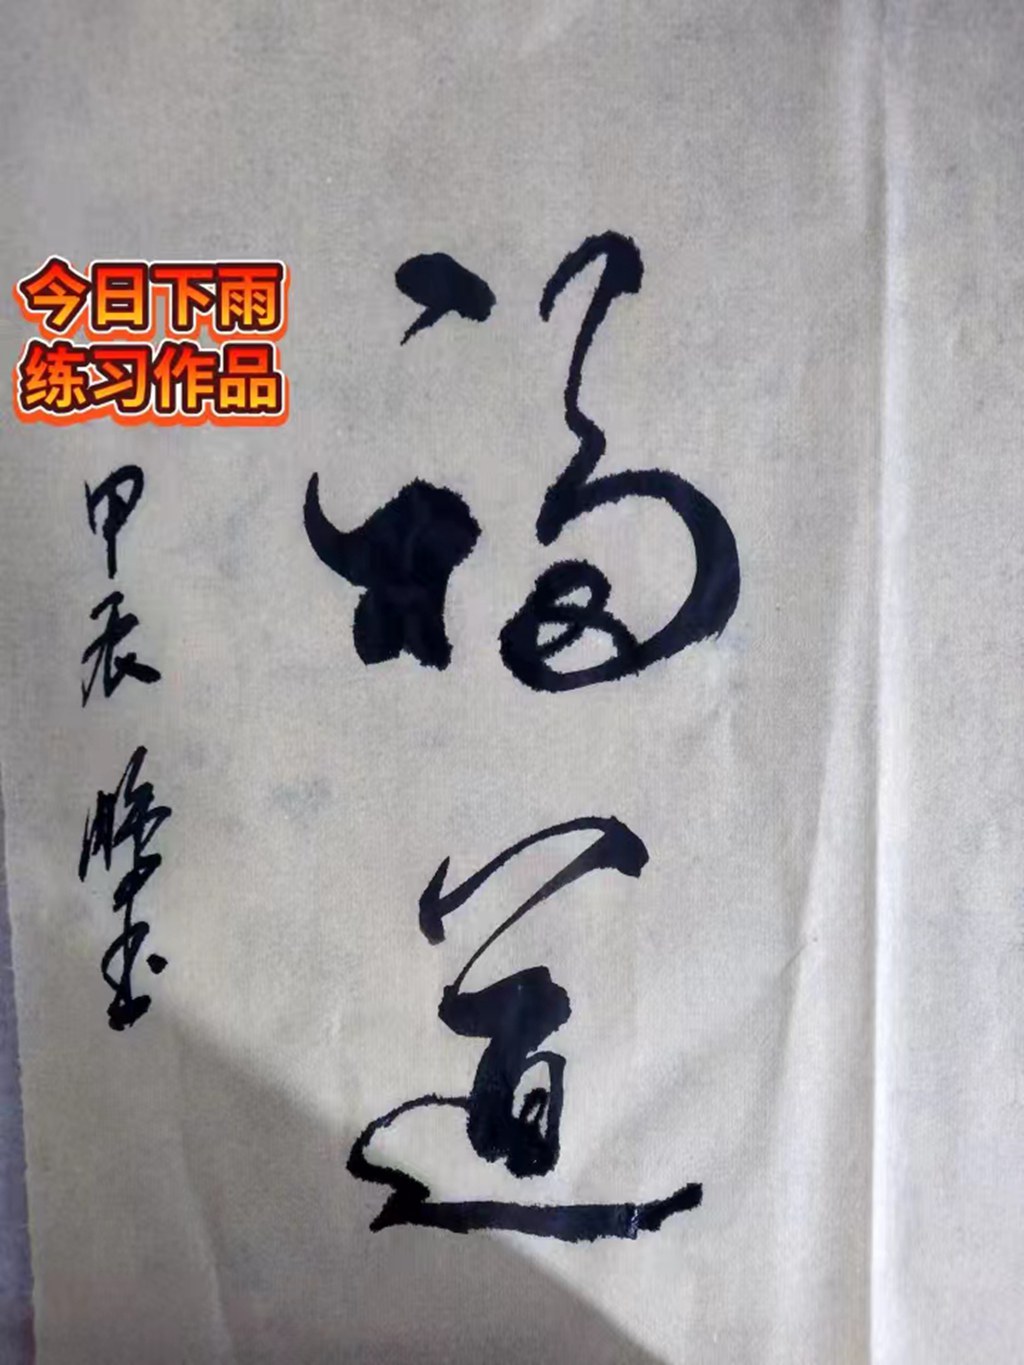 今日下雨
练习作品
福道
甲辰